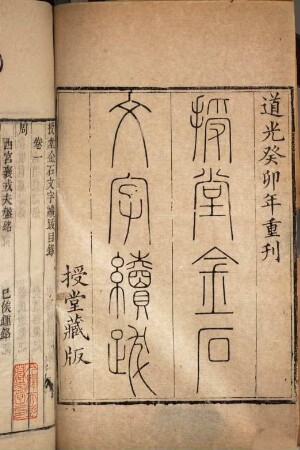 道光癸卯年重刊
授堂金石
文字續跋
授堂藏版
授堂金石文字續跋目錄
卷一
周
西宮襄戎夫盤銘